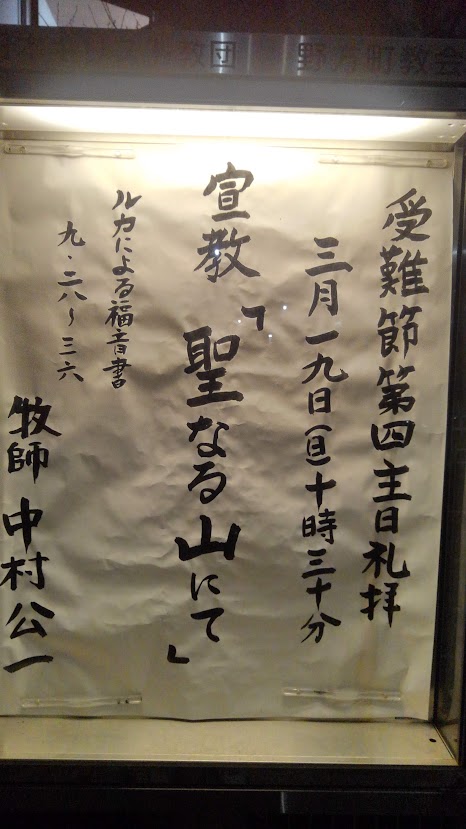 教団 野方町教会
受難節第四主日礼拝
三月一九日(日)十時三十分
宣教「聖なる山にて」
ルカによる福音書
九・二八〜三六
牧師 中村公一